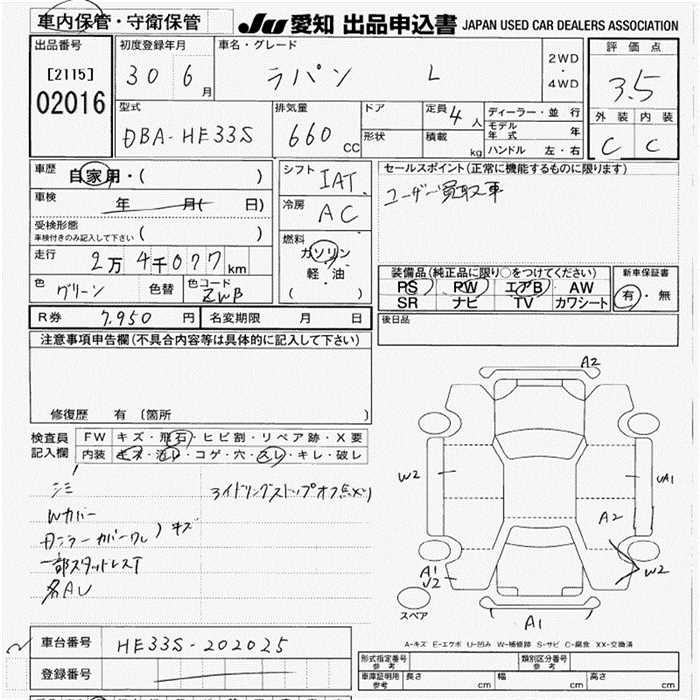 車内保管・守衛保管
JU 愛知 出品申込書 JAPAN USED CAR DEALERS ASSOCIATION
出品番号 [2115] 02016
初度登録年月 30 6月
車名・グレード ラパン L
2WD・4WD
評価点 3.5
外装 内装
C C
型式 DBA-HE33S
排気量 660 CC
ドア
形状
定員 4人
積載 kg
ディーラー・並行
モデル年式 年
ハンドル 左・右
車歴 自家用・( )
車検 年 月( 日)
受検形態
車検付きのみ記入して下さい ( )
走行 2万4千077km
色 グリーン 色替 色コード ZWB
シフト IAT
冷房 AC
燃料 ガソリン
軽・油
( )
セールスポイント(正常に機能するものに限ります)
ユーザー買取車
装備品(純正品に限り○をつけてください)
PS PW エアB AW
SR ナビ TV カワシート
新車保証書
有・無
R券 7,950円 名変期限 月 日
後日品
注意事項申告欄(不具合内容等は具体的に記入して下さい)
修復歴 有 〔箇所 〕
検査員記入欄
FW キズ・飛石・ヒビ割・リペア跡・X要
内装 キズ・汚レ・コゲ・穴・スレ・キレ・破レ
シミ
アイドリングストップオフ点メツ
Wカバー
カバーワレ)キズ
一部スタッドレスT
名AU
A2
W2
UA1
A2
W2
A1
U2
A1
スペア
A-キズ E-エクボ U-凹み W-補修跡 S-サビ C-腐食 XX-交換済
車台番号 HE33S-202025
登録番号
形式指定番号 参考 類別区分番号 参考
車庫証明用 参考 長さ cm 幅 cm 高さ cm